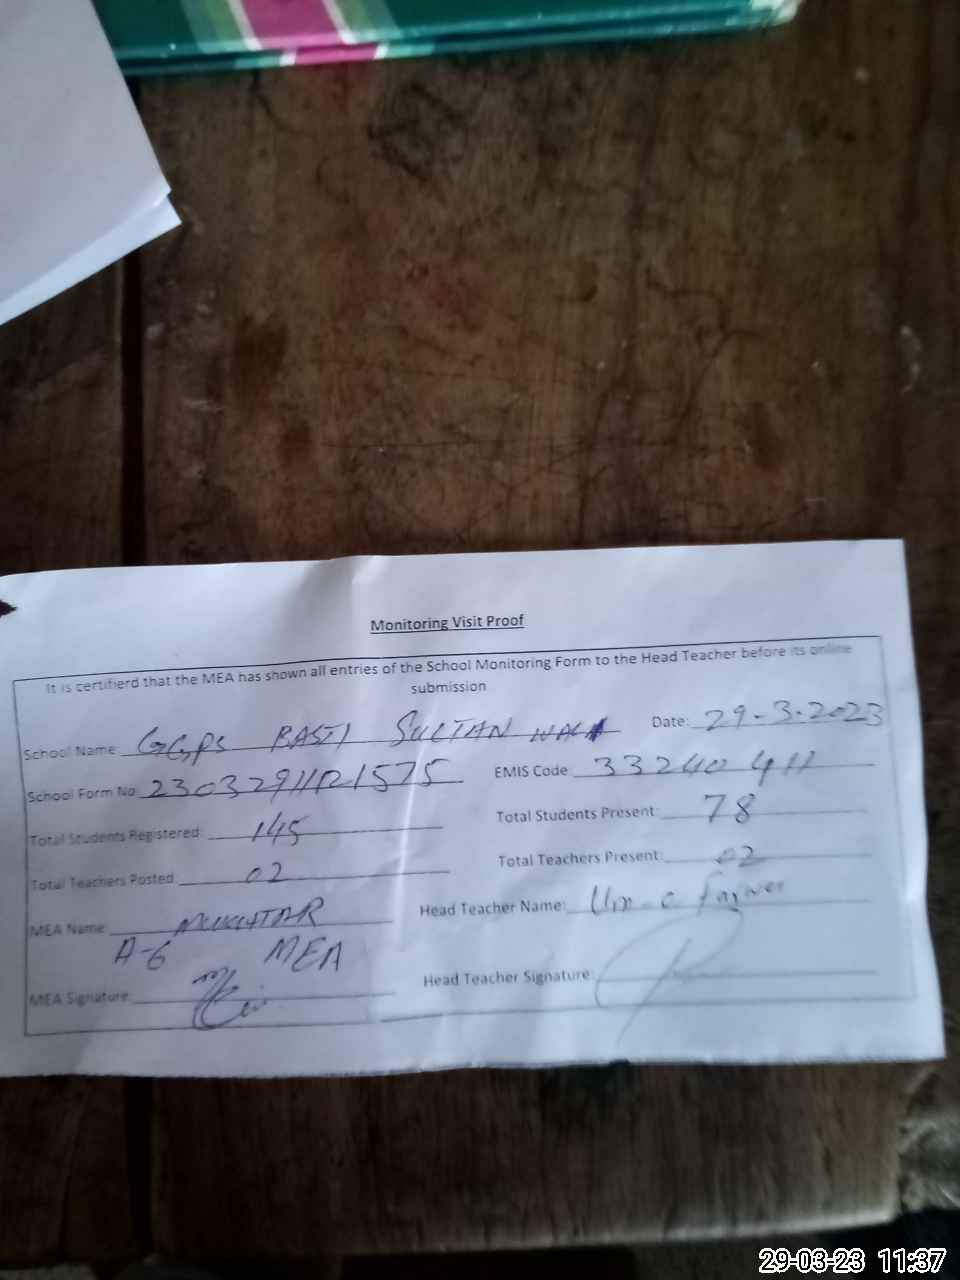 Monitoring Visit Proof
It is certifierd that the MEA has shown all entries of the School Monitoring Form to the Head Teacher before its online
submission
School Name: GGPS BASTI SULTAN WALA Date: 29-3-2023
School Form No: EMIS Code: 33240411
Total Students Registered: 145 Total Students Present: 78
Total Teachers Posted: 02 Total Teachers Present: 02
MEA Name: MUKHTAR Head Teacher Name:
A-6 MEA
MEA Signature: Head Teacher Signature:
29-03-23 11:37